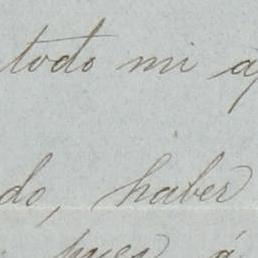 todo mi a
do, haber
pues á